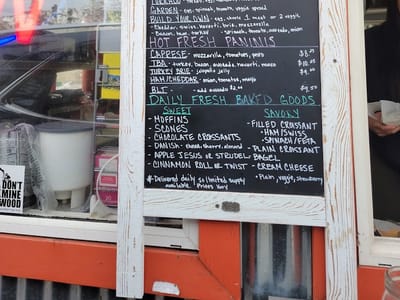 GARDEN - egg, spinach, tomato, veggie spread
BUILD YOUR OWN - egg, choose 1 meat or 2 veggie
- Cheddar, swiss, havarti, brie, mozzarella
- Bacon, ham, turkey - spinach, tomato, avocado, onion
HOT FRESH PANINIS
CAPRESE - mozzarella, tomatoes, pesto $8.25
TBA - turkey, bacon, avocado, havarti, $10.25
TURKEY BRIE - jalapeño jelly $9.25
HAM/CHEDDAR - onion, tomatoes, mayo
BLT - add avocado $2 $9.50
DAILY FRESH BAKED GOODS
SWEET
- MUFFINS
- SCONES
- CHOCOLATE CROISSANTS
- DANISH - cheese, cherry, almond
- APPLE JESUS or STRUDEL
- CINNAMON ROLL or TWIST
SAVORY
- FILLED CROISSANT
- HAM/SWISS
- SPINACH/FETA
- PLAIN CROISSANT
- BAGEL
- CREAM CHEESE
- Plain, veggie, strawberry
* Delivered daily so limited supply
available. Prices Vary
DON'T
MINE
WOOD